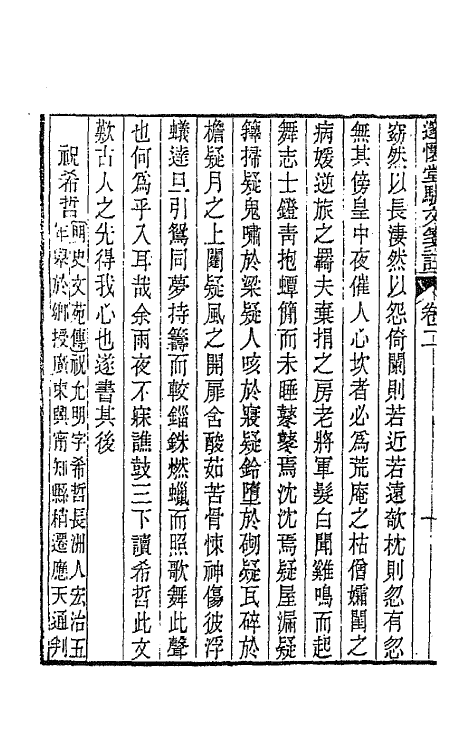 邃懷堂駢文箋註 卷二 一
窈然以長淒然以怨倚闌則若近若遠欹枕則忽有忽
無其傍皇中夜催人心坎者必為荒庵之枯僧孀閨之
病媛逆旅之羈夫棄捐之房老將軍髮白聞雞鳴而起
舞志士鐙靑抱蟫簡而未睡鼕鼕焉沈沈焉疑屋漏疑
籜掃疑鬼嘯於梁疑人咳於寢疑鈴墮於砌疑瓦碎於
檐疑月之上闌疑風之開扉含酸茹苦骨悚神傷彼浮
蟻達旦引鴛同夢持籌而較錙銖燃蠟而照歌舞此聲
也何為乎入耳哉余雨夜不寐譙鼓三下讀希哲此文
歎古人之先得我心也遂書其後
祝希哲 明史文苑傳祝允明字希哲長洲人宏治五
年舉於鄉授廣東興甯知縣稍遷應天通判